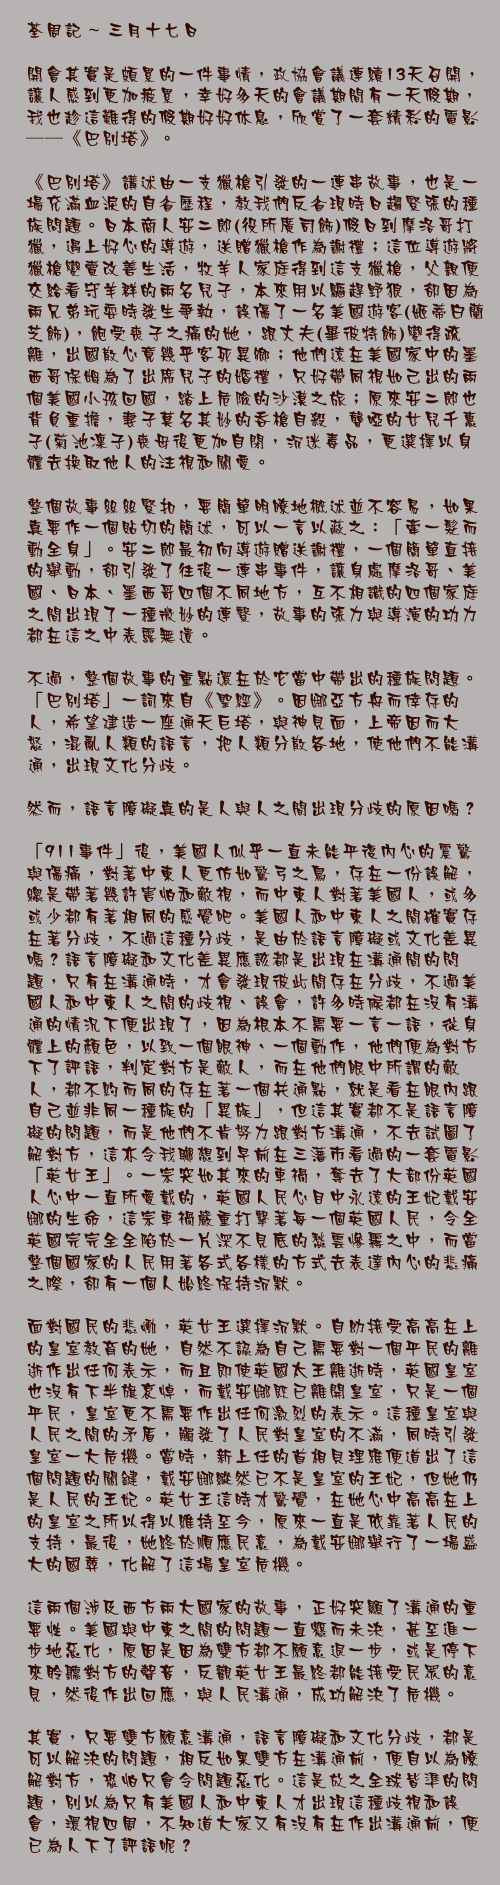 荃周記 ~ 三月十七日
開會其實是頗累的一件事情，政協會議連續13天召開，
讓人感到更加疲累，幸好多天的會議期間有一天假期，
我也趁這難得的假期好好休息，欣賞了一套精彩的電影
──《巴別塔》。
《巴別塔》講述由一支獵槍引發的一連串故事，也是一
場充滿血淚的自省歷程，教我們反省現時日趨緊張的種
族問題。日本商人安二郎(役所廣司飾)假日到摩洛哥打
獵，遇上好心的導遊，送贈獵槍作為謝禮；這位導遊將
獵槍變賣改善生活，牧羊人家庭得到這支獵槍，父親便
交給看守羊群的兩名兒子，本來用以驅趕野狼，卻因為
兩兄弟玩耍時發生爭執，誤傷了一名美國遊客(姬蒂白蘭
芝飾)，飽受喪子之痛的她，跟丈夫(畢彼特飾)變得疏
離，出國散心竟幾乎客死異鄉；他們遠在美國家中的墨
西哥保姆為了出席兒子的婚禮，只好帶同視如己出的兩
個美國小孩回國，踏上危險的沙漠之旅；原來安二郎也
背負重擔，妻子莫名其妙的吞槍自殺，聾啞的女兒千惠
子(菊池凜子)喪母後更加自閉，沉迷毒品，更選擇以身
體去換取他人的注視和關愛。
整個故事絲絲緊扣，要簡單明瞭地概述並不容易，如果
真要作一個貼切的簡述，可以一言以蔽之：「牽一髮而
動全身」。安二郎最初向導遊贈送謝禮，一個簡單直接
的舉動，卻引發了往後一連串事件，讓身處摩洛哥、美
國、日本、墨西哥四個不同地方，互不相識的四個家庭
之間出現了一種微妙的連繫，故事的張力與導演的功力
都在這之中表露無遺。
不過，整個故事的重點還在於它當中帶出的種族問題。
「巴別塔」一詞來自《聖經》。因挪亞方舟而倖存的
人，希望建造一座通天巨塔，與神見面，上帝因而大
怒，混亂人類的語言，把人類分散各地，使他們不能溝
通，出現文化分歧。
然而，語言障礙真的是人與人之間出現分歧的原因嗎？
「911事件」後，美國人似乎一直未能平復內心的震驚
與傷痛，對著中東人更仿如驚弓之鳥，存在一份誤解，
總是帶著幾許害怕和敵視，而中東人對著美國人，或多
或少都有著相同的感覺吧。美國人和中東人之間確實存
在著分歧，不過這種分歧，是由於語言障礙或文化差異
嗎？語言障礙和文化差異應該都是出現在溝通間的問
題，只有在溝通時，才會發現彼此間存在分歧，不過美
國人和中東人之間的歧視、誤會，許多時候都在沒有溝
通的情況下便出現了，因為根本不需要一言一語，從身
體上的顏色，以致一個眼神、一個動作，他們便為對方
下了評語，判定對方是敵人，而在他們眼中所謂的敵
人，都不約而同的存在著一個共通點，就是看在眼內跟
自己並非同一種族的「異族」，但這其實都不是語言障
礙的問題，而是他們不肯努力跟對方溝通，不去試圖了
解對方，這亦令我聯想到早前在三藩市看過的一套電影
「英女王」。一宗突如其來的車禍，奪去了大部份英國
人心中一直所愛戴的，英國人民心目中永遠的王妃戴安
娜的生命，這宗車禍嚴重打擊著每一個英國人民，令全
英國完完全全陷於一片深不見底的愁雲慘霧之中，而當
整個國家的人民用著各式各樣的方式去表達內心的悲痛
之際，卻有一個人始終保持沉默。
面對國民的悲慟，英女王選擇沉默。自幼接受高高在上
的皇室教育的她，自然不認為自己需要對一個平民的離
逝作出任何表示，而且即使英國大王離逝時，英國皇室
也沒有下半旗哀悼，而戴安娜既已離開皇室，只是一個
平民，皇室更不需要作出任何激烈的表示。這種皇室與
人民之間的矛盾，觸發了人民對皇室的不滿，同時引發
皇室一大危機。當時，新上任的首相貝理雅便道出了這
個問題的關鍵，戴安娜縱然已不是皇室的王妃，但她仍
是人民的王妃。英女王這時才驚覺，在她心中高高在上
的皇室之所以得以維持至今，原來一直是依靠著人民的
支持，最後，她終於順應民意，為戴安娜舉行了一場盛
大的國葬，化解了這場皇室危機。
這兩個涉及西方兩大國家的故事，正好突顯了溝通的重
要性。美國與中東之間的問題一直懸而未決，甚至進一
步地惡化，原因是因為雙方都不願意退一步，或是停下
來聆聽對方的聲音，反觀英女王最終都能接受民眾的意
見，然後作出回應，與人民溝通，成功解決了危機。
其實，只要雙方願意溝通，語言障礙和文化分歧，都是
可以解決的問題，相反如果雙方在溝通前，便自以為瞭
解對方，恐怕只會令問題惡化。這是放之全球皆準的問
題，別以為只有美國人和中東人才出現這種歧視和誤
會，環視四周，不知道大家又有沒有在作出溝通前，便
已為人下了評語呢？